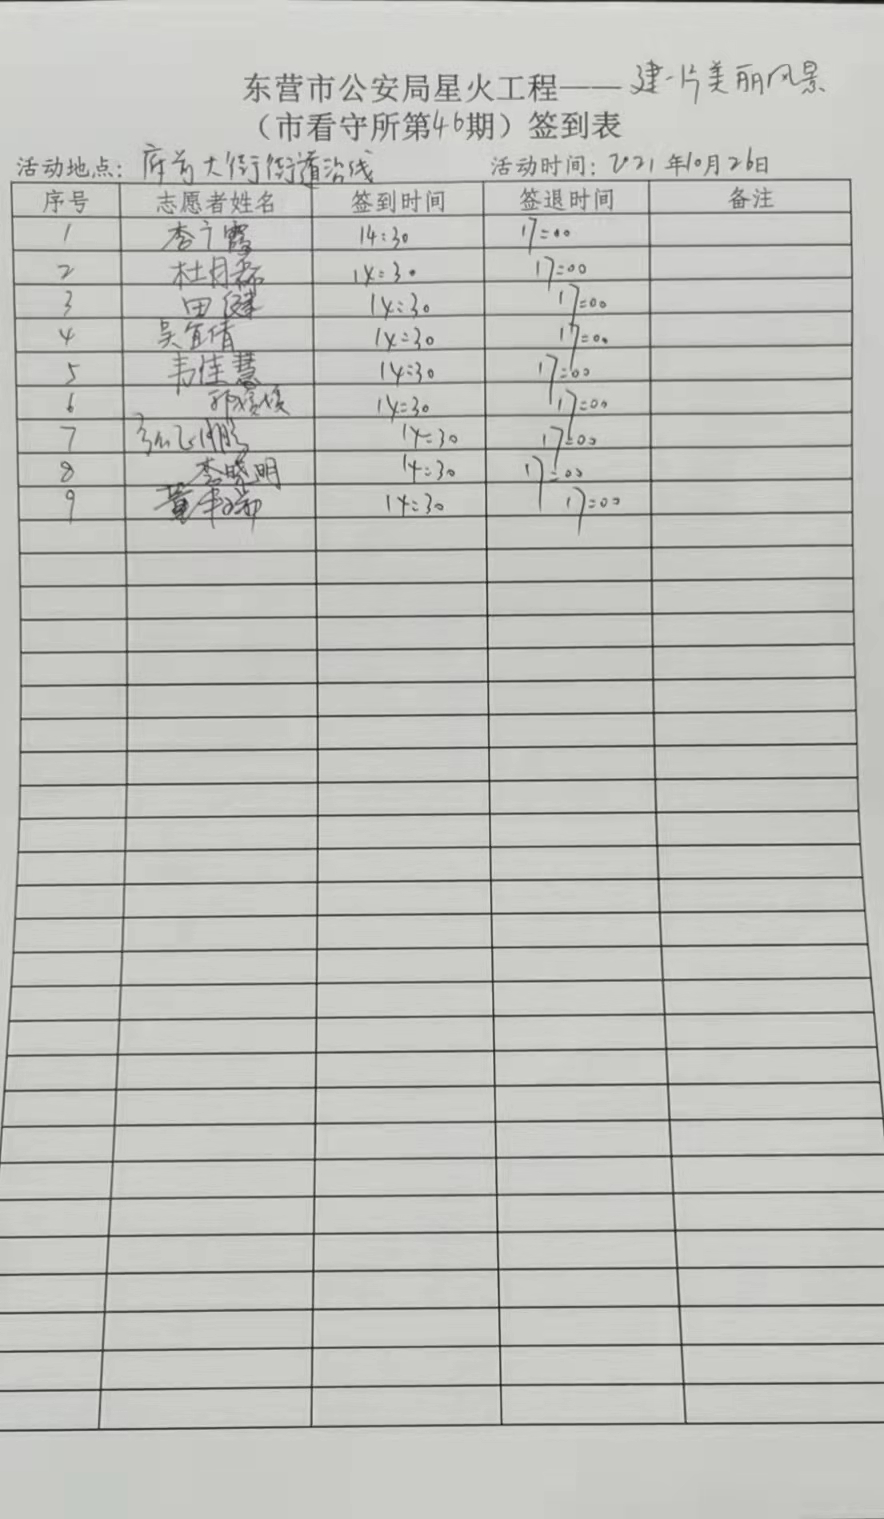 东营市公安局星火工程——建一片美丽风景
（市看守所第46期）签到表
活动地点：府前大街街道沿线 活动时间：2021年10月26日
序号 志愿者姓名 签到时间 签退时间 备注
1 李宁霞 14:30 17:00
2 杜月 14:30 17:00
3 田健 14:30 17:00
4 吴宜倩 14:30 17:00
5 韦佳慧 14:30 17:00
6 14:30 17:00
7 14:30 17:00
8 李晓明 14:30 17:00
9 董 14:30 17:00